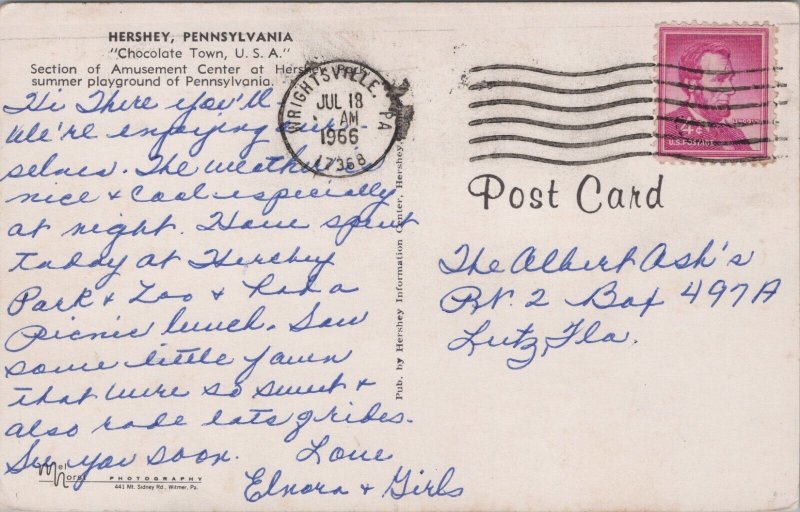 HERSHEY, PENNSYLVANIA
"Chocolate Town, U. S. A."
Section of Amusement Center at Hershey,
summer playground of Pennsylvania.
Hi There you'll
We're enjoying our-
selves. The weather
nice & cool especially
at night. Have spent
today at Hershey
Park & Zoo & had a
Picnic lunch. Saw
some little fawn
that were so sweet &
also rode lots of rides.
See you soon. Love
Elnora & Girls
Mel Horst PHOTOGRAPHY
441 Mt. Sidney Rd., Witmer, Pa.
Pub. by Hershey Information Center, Hershey,
WRIGHTSVILLE, PA
JUL 18
AM
1966
17368
LINCOLN
4¢
U.S. POSTAGE
Post Card
The Albert Ash's
Rt. 2 Box 497A
Lutz, Fla.